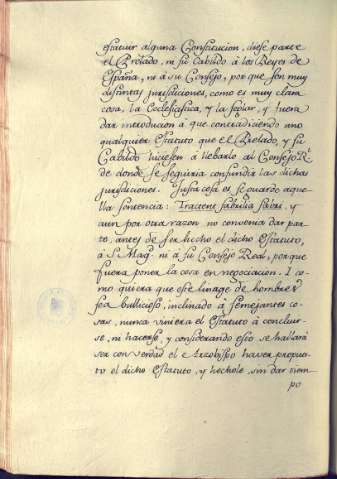 estatuir alguna Constitucion, diese parte
el Prelado, ni su Cabildo á los Reyes de
España, ni á su Consejo, porque son muy
distintas jurisdiciones, como es muy clara
cosa, la Ecclesiastica, y la seglar, y fuera
dar introducion á que contradiciendo uno
qualquier Estatuto que el Prelado, y su
Cabildo hiciesen á llebarlo al Consejo Rl.
de donde se seguiria confundir las dichas
jurisdiciones. Justa cosa es se guarde aque-
lla sentencia: Tractent fabrilia fabri, y
aun por otra razon no convenia dar par-
te, antes de ser hecho el dicho Estatuto,
á S. Mag. ni á su Consejo Real, porque
fuera poner la cosa en negociacion. I co-
mo quiera que este linage de hombres
sea bullicioso, inclinado á semejantes co-
sas, nunca viniera el Estatuto á concluir-
se, ni hacerse, y considerando esto se hallará
ser con verdad el Arzobispo haver propues-
to el dicho Estatuto, y hechole, sin dar tiem-
po